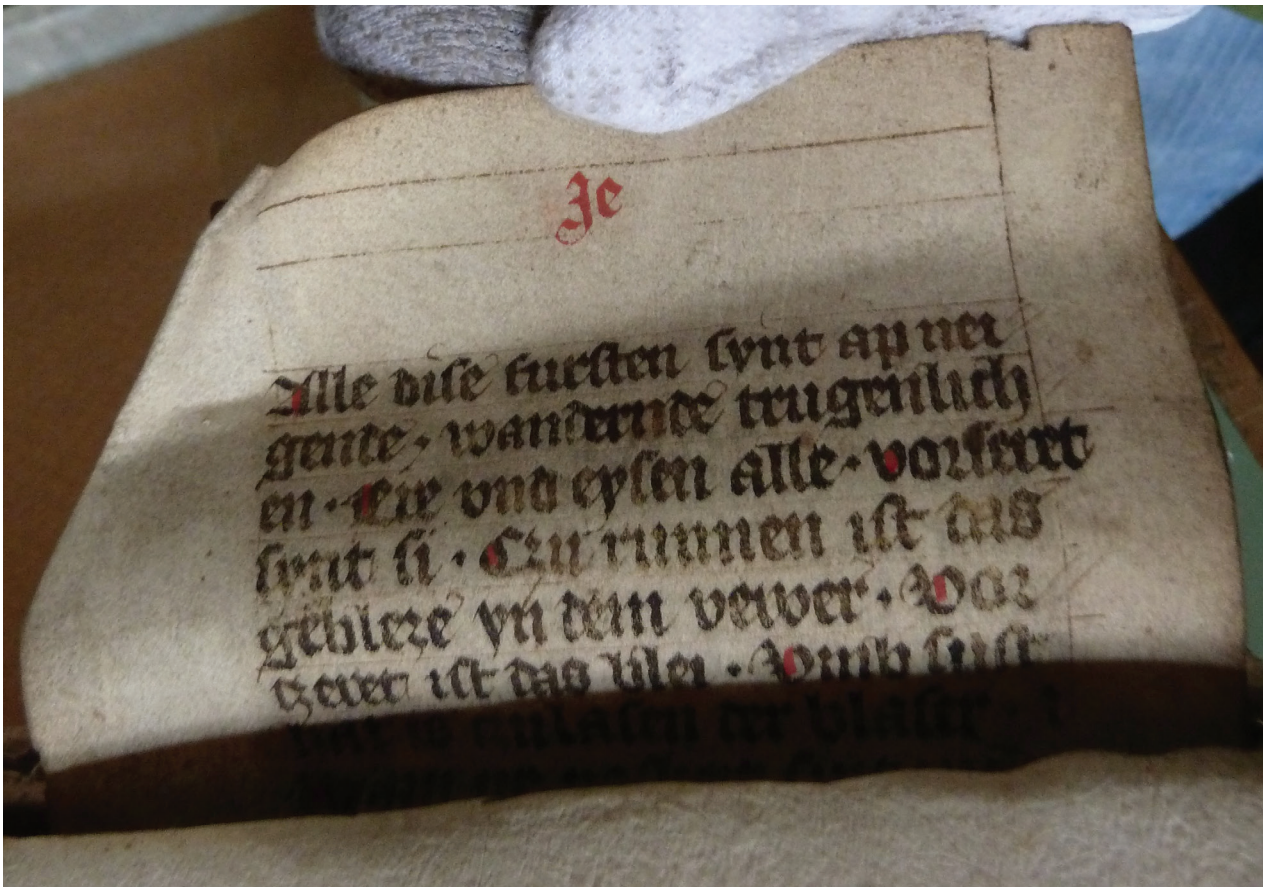 Je
Alle dise fursten synt ap nei
gende · wandernde trugenlich
en · Ere vnd eysen alle · vorseret
synt si · Czu runnen ist das
gebleze yn dem vewer · Vor
czeret ist das blei · Vmb sust
hat is anblasen der blaser ·